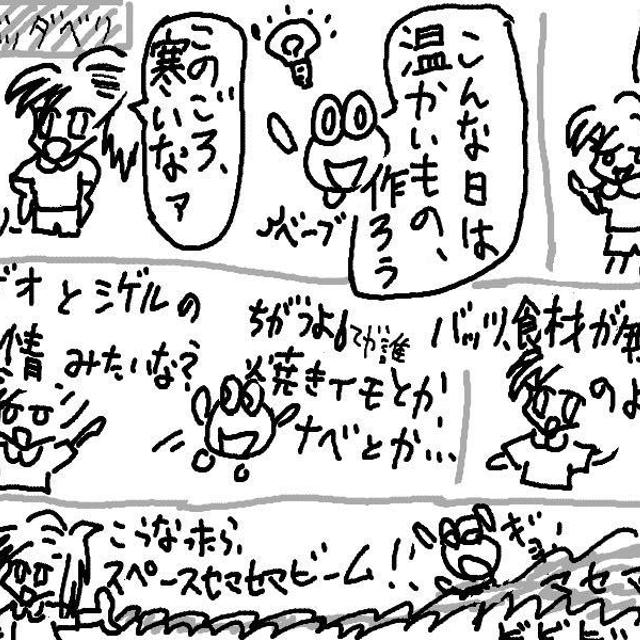 ツダベリ
このごろ、
寒いなァ
こんな日は
温かいもの、
作ろう
ベーブ
デオとシゲルの
情みたいな?
ちがうよ!
てか誰
焼きイモとか
ナベとか…
バッツ、食材が無
のよ
こうなったら、
スペースセマセマビーム!!
ギョ
マセマ
ビビビ